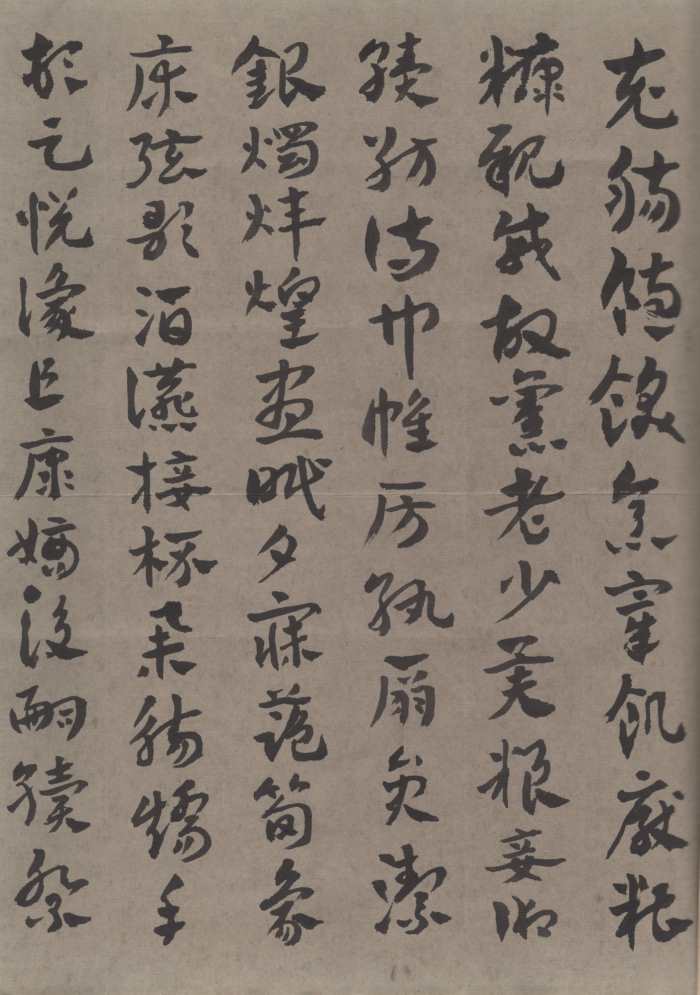 充腸飽飫烹宰飢厭糟
糠親戚故舊老少異糧妾御
績紡侍巾帷房紈扇員潔
銀燭煒煌晝眠夕寐藍筍象
床弦歌酒讌接杯舉觴矯手
頓足悅豫且康嫡後嗣續祭